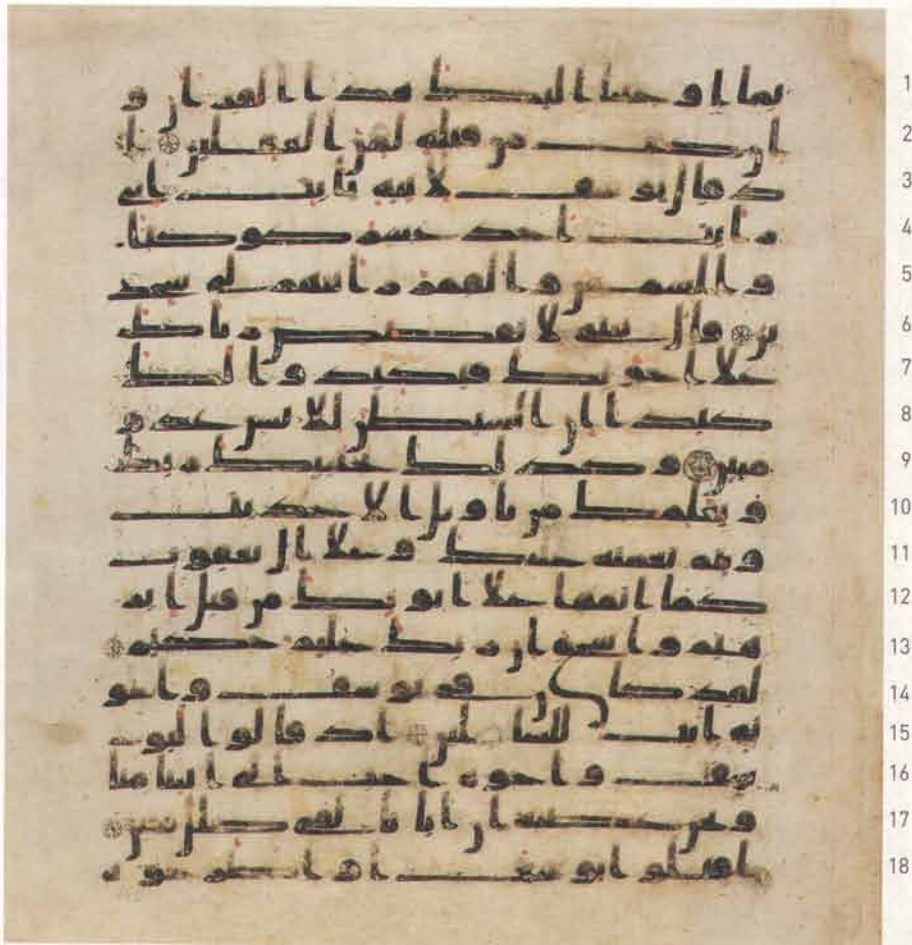 بما اوحينا اليك هذا القران و 1
ان كنت من قبله لمن الغفلين ا 2
ذ قال يوسف لابيه يابت اني 3
رايت احد عشر كوكبا 4
والشمس والقمر رايتهم لي سجد 5
ين قال يبني لا تقصص رياك 6
علا اخوتك فيكيدوا لك 7
كيدا ان الشيطن للانسن عدو 8
مبين وكذلك يجتبيك ربك 9
و يعلمك من تاويل الاحديث 10
ويتم نعمته عليك وعلا ال يعقوب 11
كما اتمها علا ابويك من قبل ابر 12
هيم واسحق ان ربك عليم حكيم 13
لقد كان في يوسف واخو 14
ته ايت للسائلين اذ قالوا ليو 15
سف واخوه احب الي ابينا منا 16
ونحن عصبه ان ابانا لفي ضلل مبين 17
اقتلوا يوسف او اطرحوه ا 18